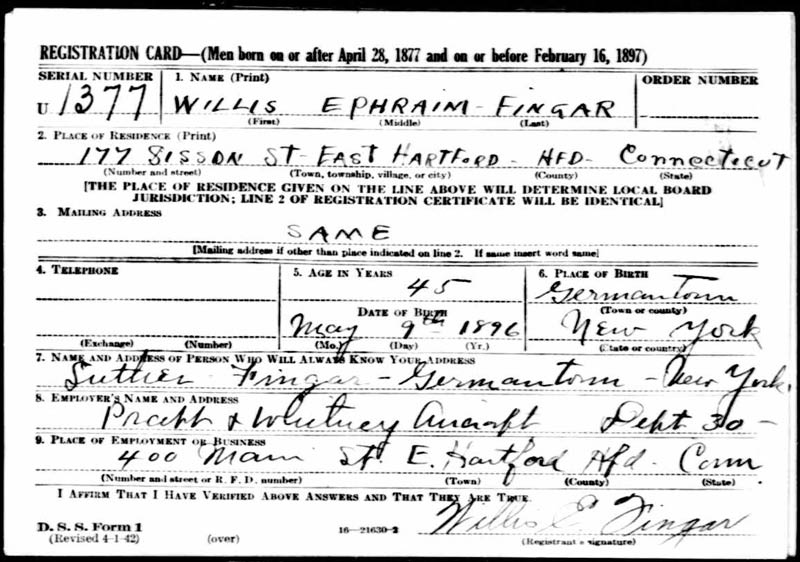 REGISTRATION CARD—(Men born on or after April 28, 1877 and on or before February 16, 1897)
SERIAL NUMBER 1. NAME (Print) ORDER NUMBER
U 1377 WILLIS EPHRAIM FINGAR
(First) (Middle) (Last)
2. PLACE OF RESIDENCE (Print)
177 SISSON ST - EAST HARTFORD - HFD - CONNECTICUT
(Number and street) (Town, township, village, or city) (County) (State)
[THE PLACE OF RESIDENCE GIVEN ON THE LINE ABOVE WILL DETERMINE LOCAL BOARD
JURISDICTION; LINE 2 OF REGISTRATION CERTIFICATE WILL BE IDENTICAL]
3. MAILING ADDRESS
SAME
[Mailing address if other than place indicated on line 2. If same insert word same]
4. TELEPHONE 5. AGE IN YEARS 6. PLACE OF BIRTH
45 Germantown
DATE OF BIRTH (Town or county)
May 9th 1896 New York
(Exchange) (Number) (Mo.) (Day) (Yr.) (State or country)
7. NAME AND ADDRESS OF PERSON WHO WILL ALWAYS KNOW YOUR ADDRESS
Luther Fingar - Germantown - New York.
8. EMPLOYER'S NAME AND ADDRESS
Pratt & Whitney Aircraft Dept 30 -
9. PLACE OF EMPLOYMENT OR BUSINESS
400 Main St. E. Hartford Hfd. Conn
(Number and street or R. F. D. number) (Town) (County) (State)
I AFFIRM THAT I HAVE VERIFIED ABOVE ANSWERS AND THAT THEY ARE TRUE.
D. S. S. Form 1 16—21630-2 Willis E. Fingar
(Revised 4-1-42) (over) (Registrant's signature)